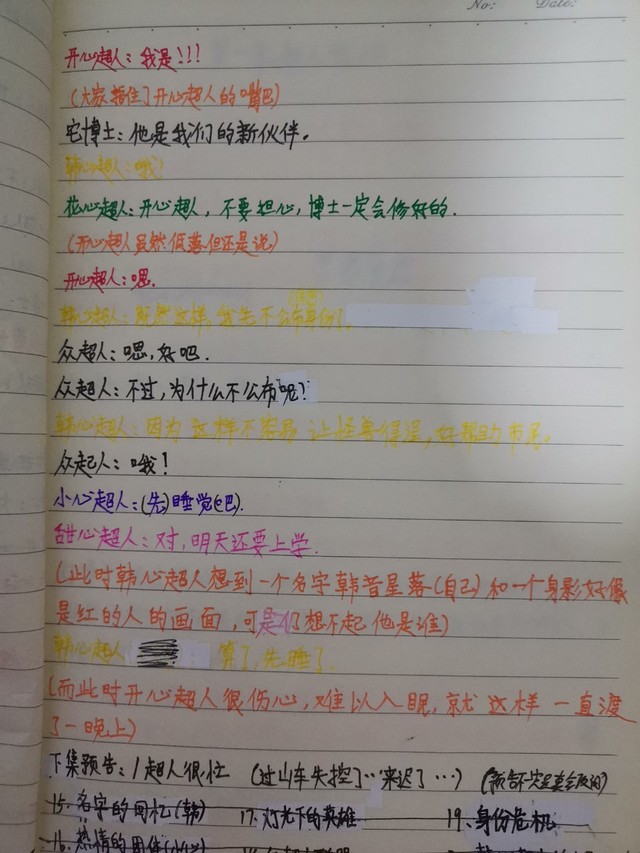 No: Date:
开心超人：我是!!!
(大家捂住了开心超人的嘴巴)
宅博士：他是我们的新伙伴。
韩心超人：哦？
花心超人：开心超人，不要担心，博士一定会修好的.
(开心超人虽然低落但还是说)
开心超人：嗯.
韩心超人：既然这样，我先不公布身份了
众超人：嗯，好吧.
众超人：不过，为什么不公布呢？
韩心超人：因为这样不容易让怪兽得逞，好帮助市民。
众超人：哦！
小心超人：(先)睡觉(吧).
甜心超人：对，明天还要上学.
(此时韩心超人想到一个名字韩音星落(自己)和一个身影好像
是红的人的画面，可是仍想不起他是谁)
韩心超人 算了，先睡了.
(而此时开心超人很伤心，难以入眠，就这样一直渡
了一晚上)
下集预告：/超人很忙 (过山车失控了…来迟了…) (预告不一定是
15. 名字的回忆(韩) 17. 灯光下的英雄 19. 身份危机
16. 热情的